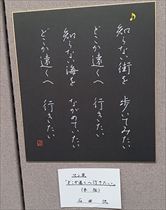 知らない街を 歩いてみたい
どこか遠くへ 行きたい
知らない海を ながめていたい
どこか遠くへ 行きたい
どこか遠くへ行きたい